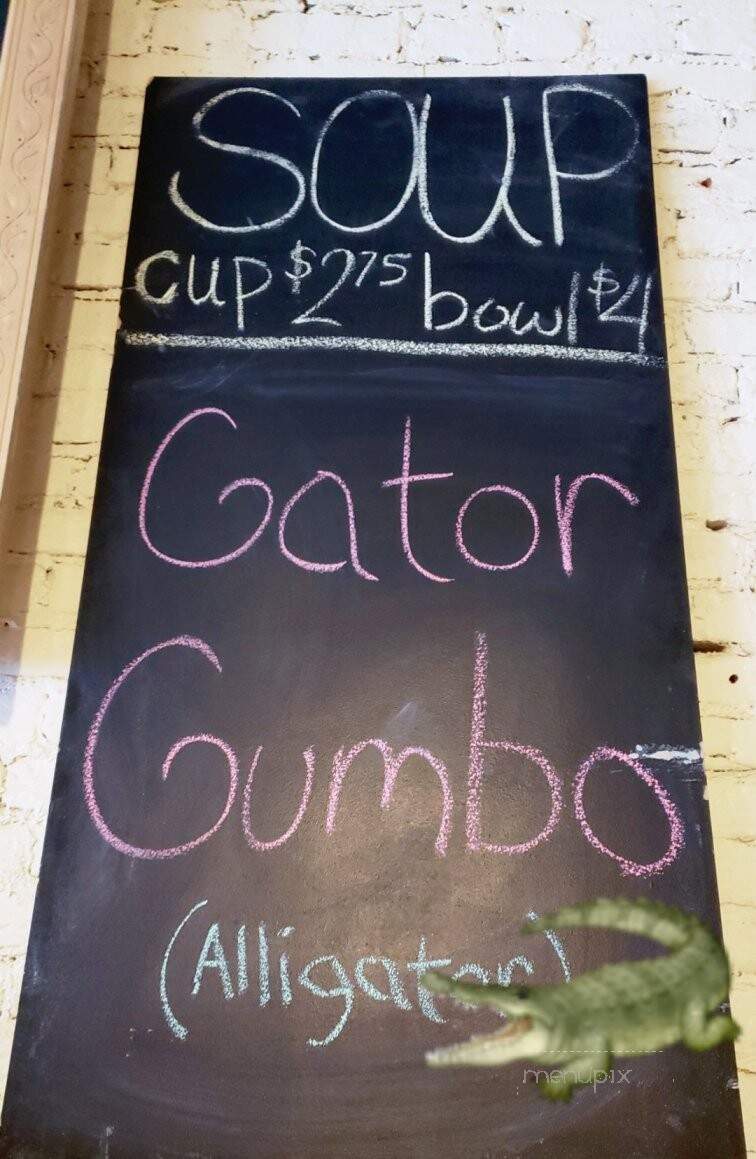 SOUP
cup $2.75 bowl $4
Gator
Gumbo
(Alligator)
menupix